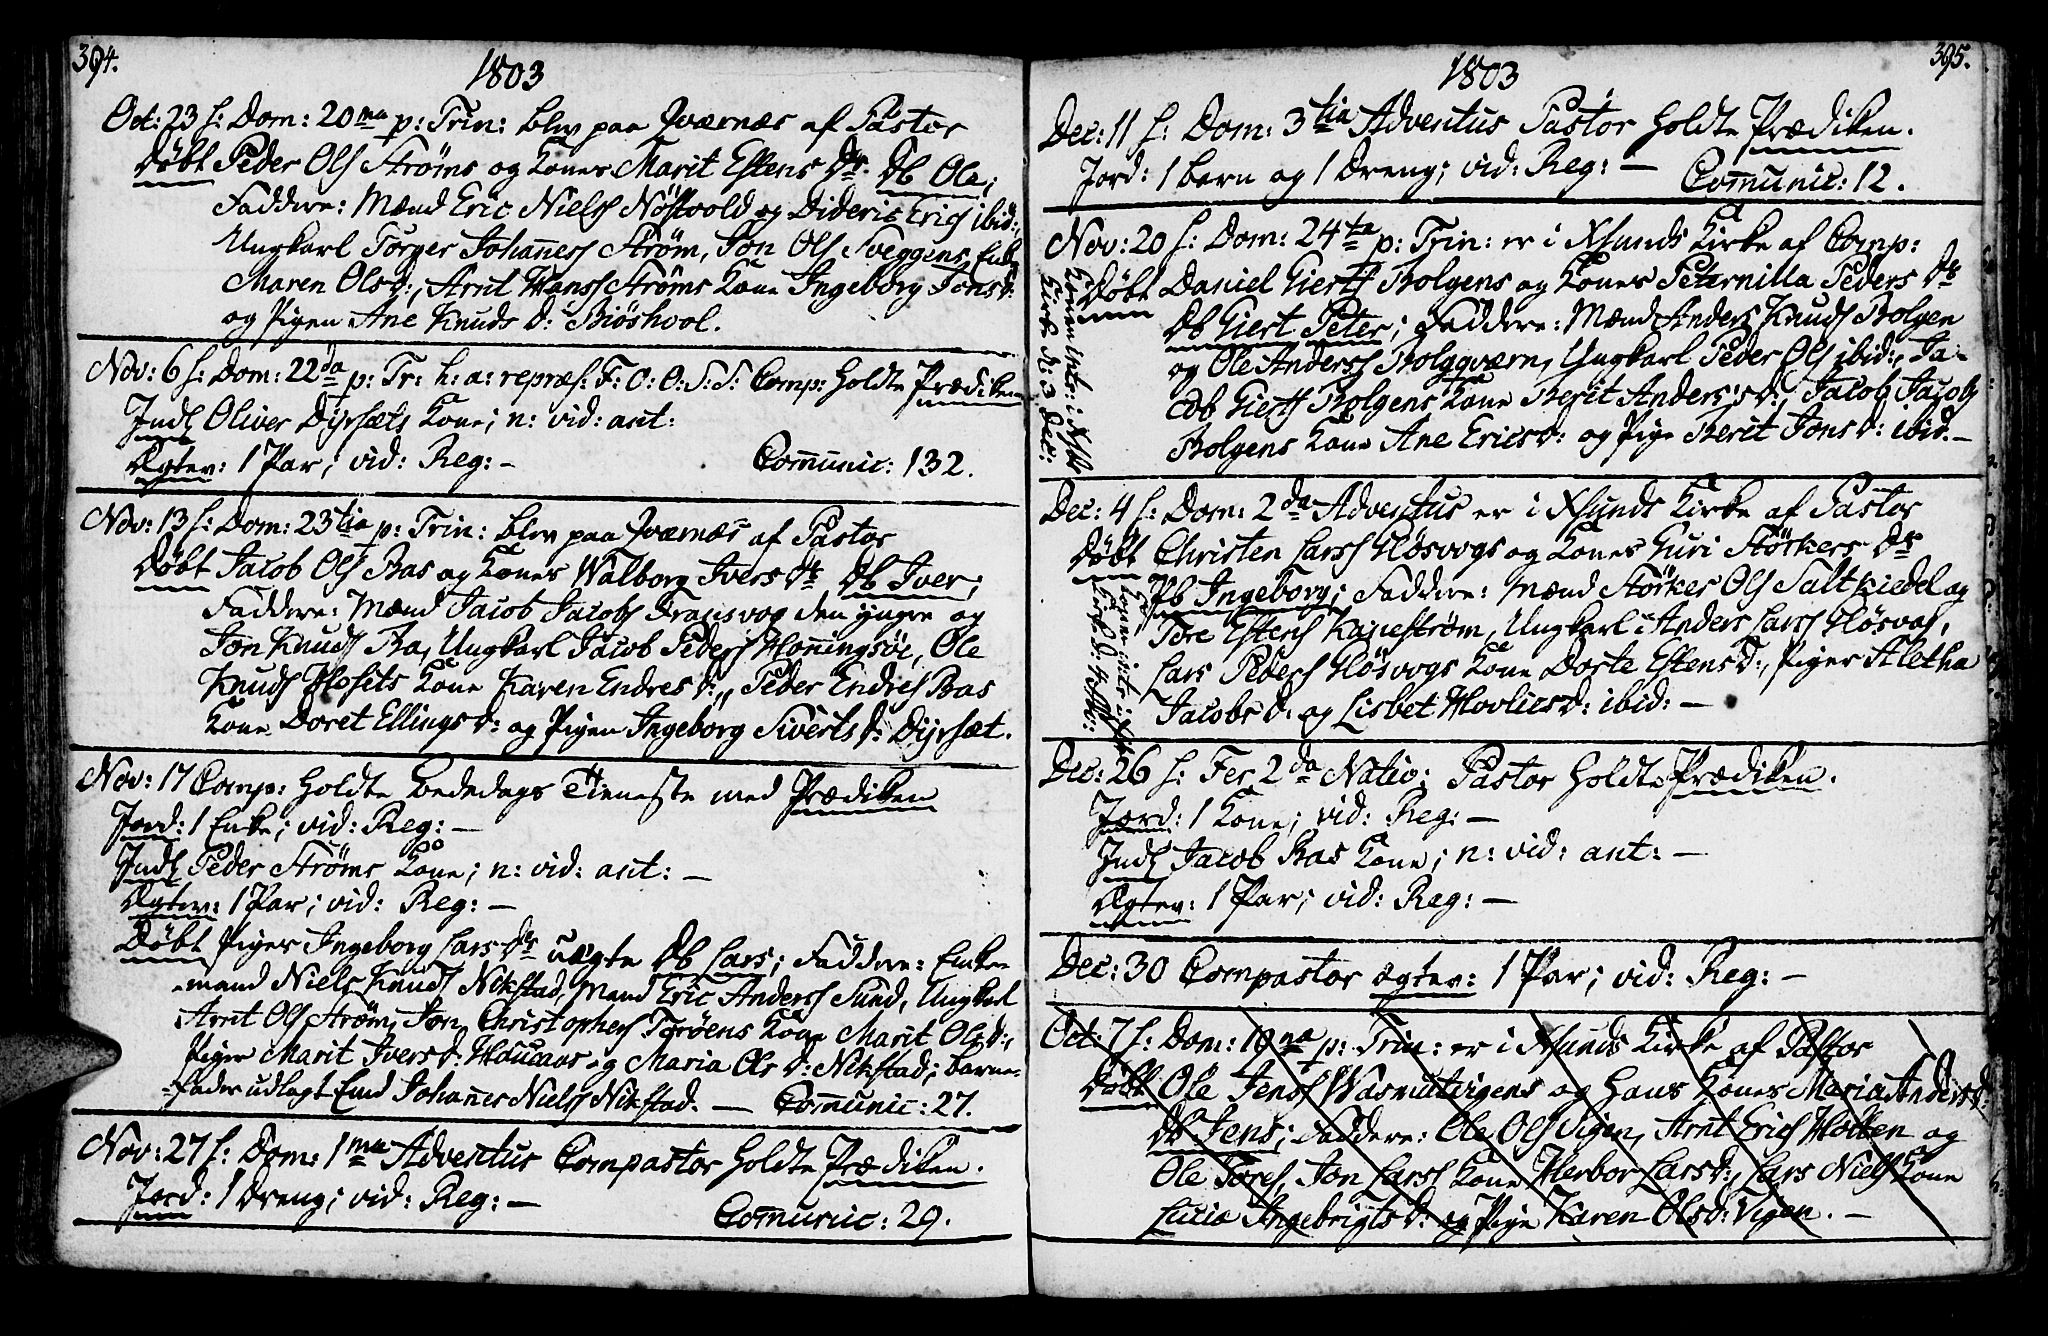 394.
1803
Oct: 23 f: Dom: 20ma p: Trin: blev paa Qværnæs af Pastor
Døbt Peder Ols Strøms og Kones Marit Estens Dr. Db Ole;
Faddere: Mænd Eric Niels Nøstvold og Dideric Erics ibid:,
Ungkarl Torger Johannes Strøm, Jon Ols Sveggens Enke
Maren Olsd:, Arnt Hans Strøms Kone Ingeborg Jonsd:
og Pigen Ane Knuds d: Biøshvol.
Nov: 6 f: Dom: 22da p: Tr: h: a: repræs: F: O: O: S: S: Comp: holdte Prædiken
Indl Oliver Dyrsæts Kone; n: vid: ant:
Ægtev: 1 Par; vid: Reg: –
Communic: 132.
Nov: 13 f: Dom: 23tia p: Trin: blev paa Qværnæs af Pastor
Døbt Jacob Ols Bas og Kones Walborg Ivers Dr Db Iver;
Faddere: Mænd Jacob Jacobs Fransvog den yngre og
Jon Knuds Ba, Ungkarl Jacob Peders Honningsøe, Ole
Knuds Hosets Kone Karen Endres d:, Peder Endres Bas
Kone Doret Ellings d: og Pigen Ingeborg Siverts d: Dyrsæt.
Nov: 17 Comp: holdte Bededags Tieneste med Prædiken
Jord: 1 Enke; vid: Reg: –
Indl Peder Strøms Kone; n: vid: ant: –
Ægtev: 1 Par; vid: Reg: –
Døbt Pigen Ingeborg Lars Dr uægte Db Lars; Faddere: Enke-
mand Niels Knuds Nekstad, Mænd Eric Anders Sund, Ungkarl
Arnt Ols Strøm, Jon Christophers Torøens Kone Marit Olsd:,
Piger Marit Ivers d: Haucaas og Maria Ols d: Nekstad; barne-
fader udlagt Em̅d Johannes Niels Nekstad. — Communic: 27.
Nov: 27 f: Dom: 1ma Adventus Compastor holdte Prædiken.
Jord: 1 Dreng; vid: Reg: –
Communic: 29.
395.
1803
Dec: 11 f: Dom: 3tia Adventus Pastor holdte Prædiken.
Jord: 1 barn og 1 Dreng; vid: Reg: –
Communic: 12.
Nov: 20 f: Dom: 24ta p: Trin: er i Xsunds Kirke af Comp:
Døbt Daniel Gierts Bolgens og Kones Peternilla Peders Dr
Db Giert Peter; Faddere: Mænd Anders Knuds Bolgen
og Ole Anders Bolggværn, Ungkarl Peder Ols ibid:, Ja-
cob Gierts Bolgens Kone Berit Anders d:, Jacob Jacobs
Bolgens Kone Ane Ericsd: og Pige Berit Jonsd: ibid. –
Konen intr: i Xsds
Kirke d: 3 Dec:
Dec: 4 f: Dom: 2da Adventus er i Xsunds Kirke af Pastor
Døbt Christen Lars Høsvogs og Kones Guri Størkers Dr
Pb Ingeborg; Faddere: Mænd Størker Ols Saltkiedel og
Tore Estens Kanestrøm, Ungkarl Anders Lars Høsvog,
Lars Peders Høsvogs Kone Dorte Estens d:, Piger Aletha
Jacobs d: og Lisbet Hovliersd: ibid: –
Konen intr: i
Kirke d:
Dec: 26 f: Fer 2da Nativ: Pastor holdte Prædiken.
Jord: 1 Kone; vid: Reg: –
Indl Jacob Bas Kone; n: vid: ant: –
Ægtev: 1 Par; vid: Reg: –
Dec: 30 Compastor ægtev: 1 Par; vid: Reg: –
Oct: 7 f: Dom: 19na p: Trin: er i Xsunds Kirke af Pastor
Døbt Ole Jens Wasmutvigens og hans Kones Maria Anders d:
Db Jens; Faddere: Ole Ols Vigen, Arnt Erics Holten og
Ole Tores, Jon Lars Kone Herbor Larsd:, Lars Niels Kone
Lucia Ingebrigts d: og Pige Karen Olsd: Vigen. –